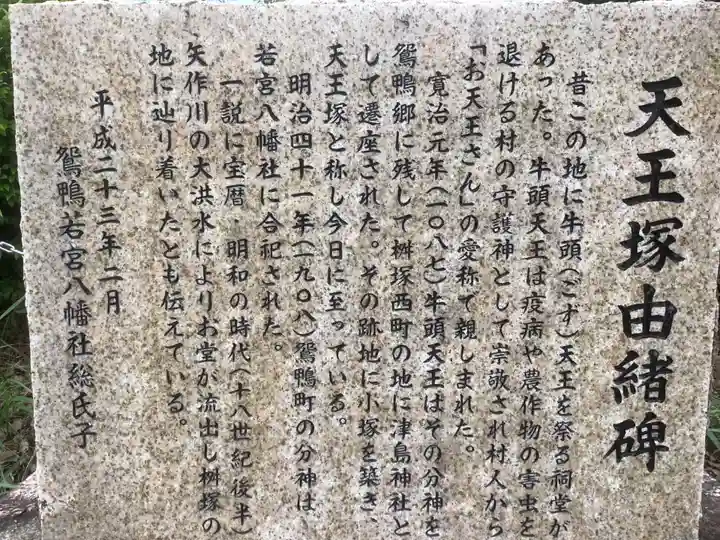 天王塚由緒碑
昔この地に牛頭(ごず)天王を祭る祠堂が
あった。牛頭天王は疫病や農作物の害虫を
退ける村の守護神として崇敬され村人から
「お天王さん」の愛称で親しまれた。
寛治元年(一〇八七)牛頭天王はその分神を
鴛鴨郷に残して桝塚西町の地に津島神社と
して遷座された。その跡地に小塚を築き、
天王塚と称し今日に至っている。
明治四十一年(一九〇八)鴛鴨町の分神は、
若宮八幡社に合祀された。
一説に宝暦・明和の時代(十八世紀後半)
矢作川の大洪水によりお堂が流出し桝塚の
地に辿り着いたとも伝えている。
平成二十三年二月
鴛鴨若宮八幡社総氏子